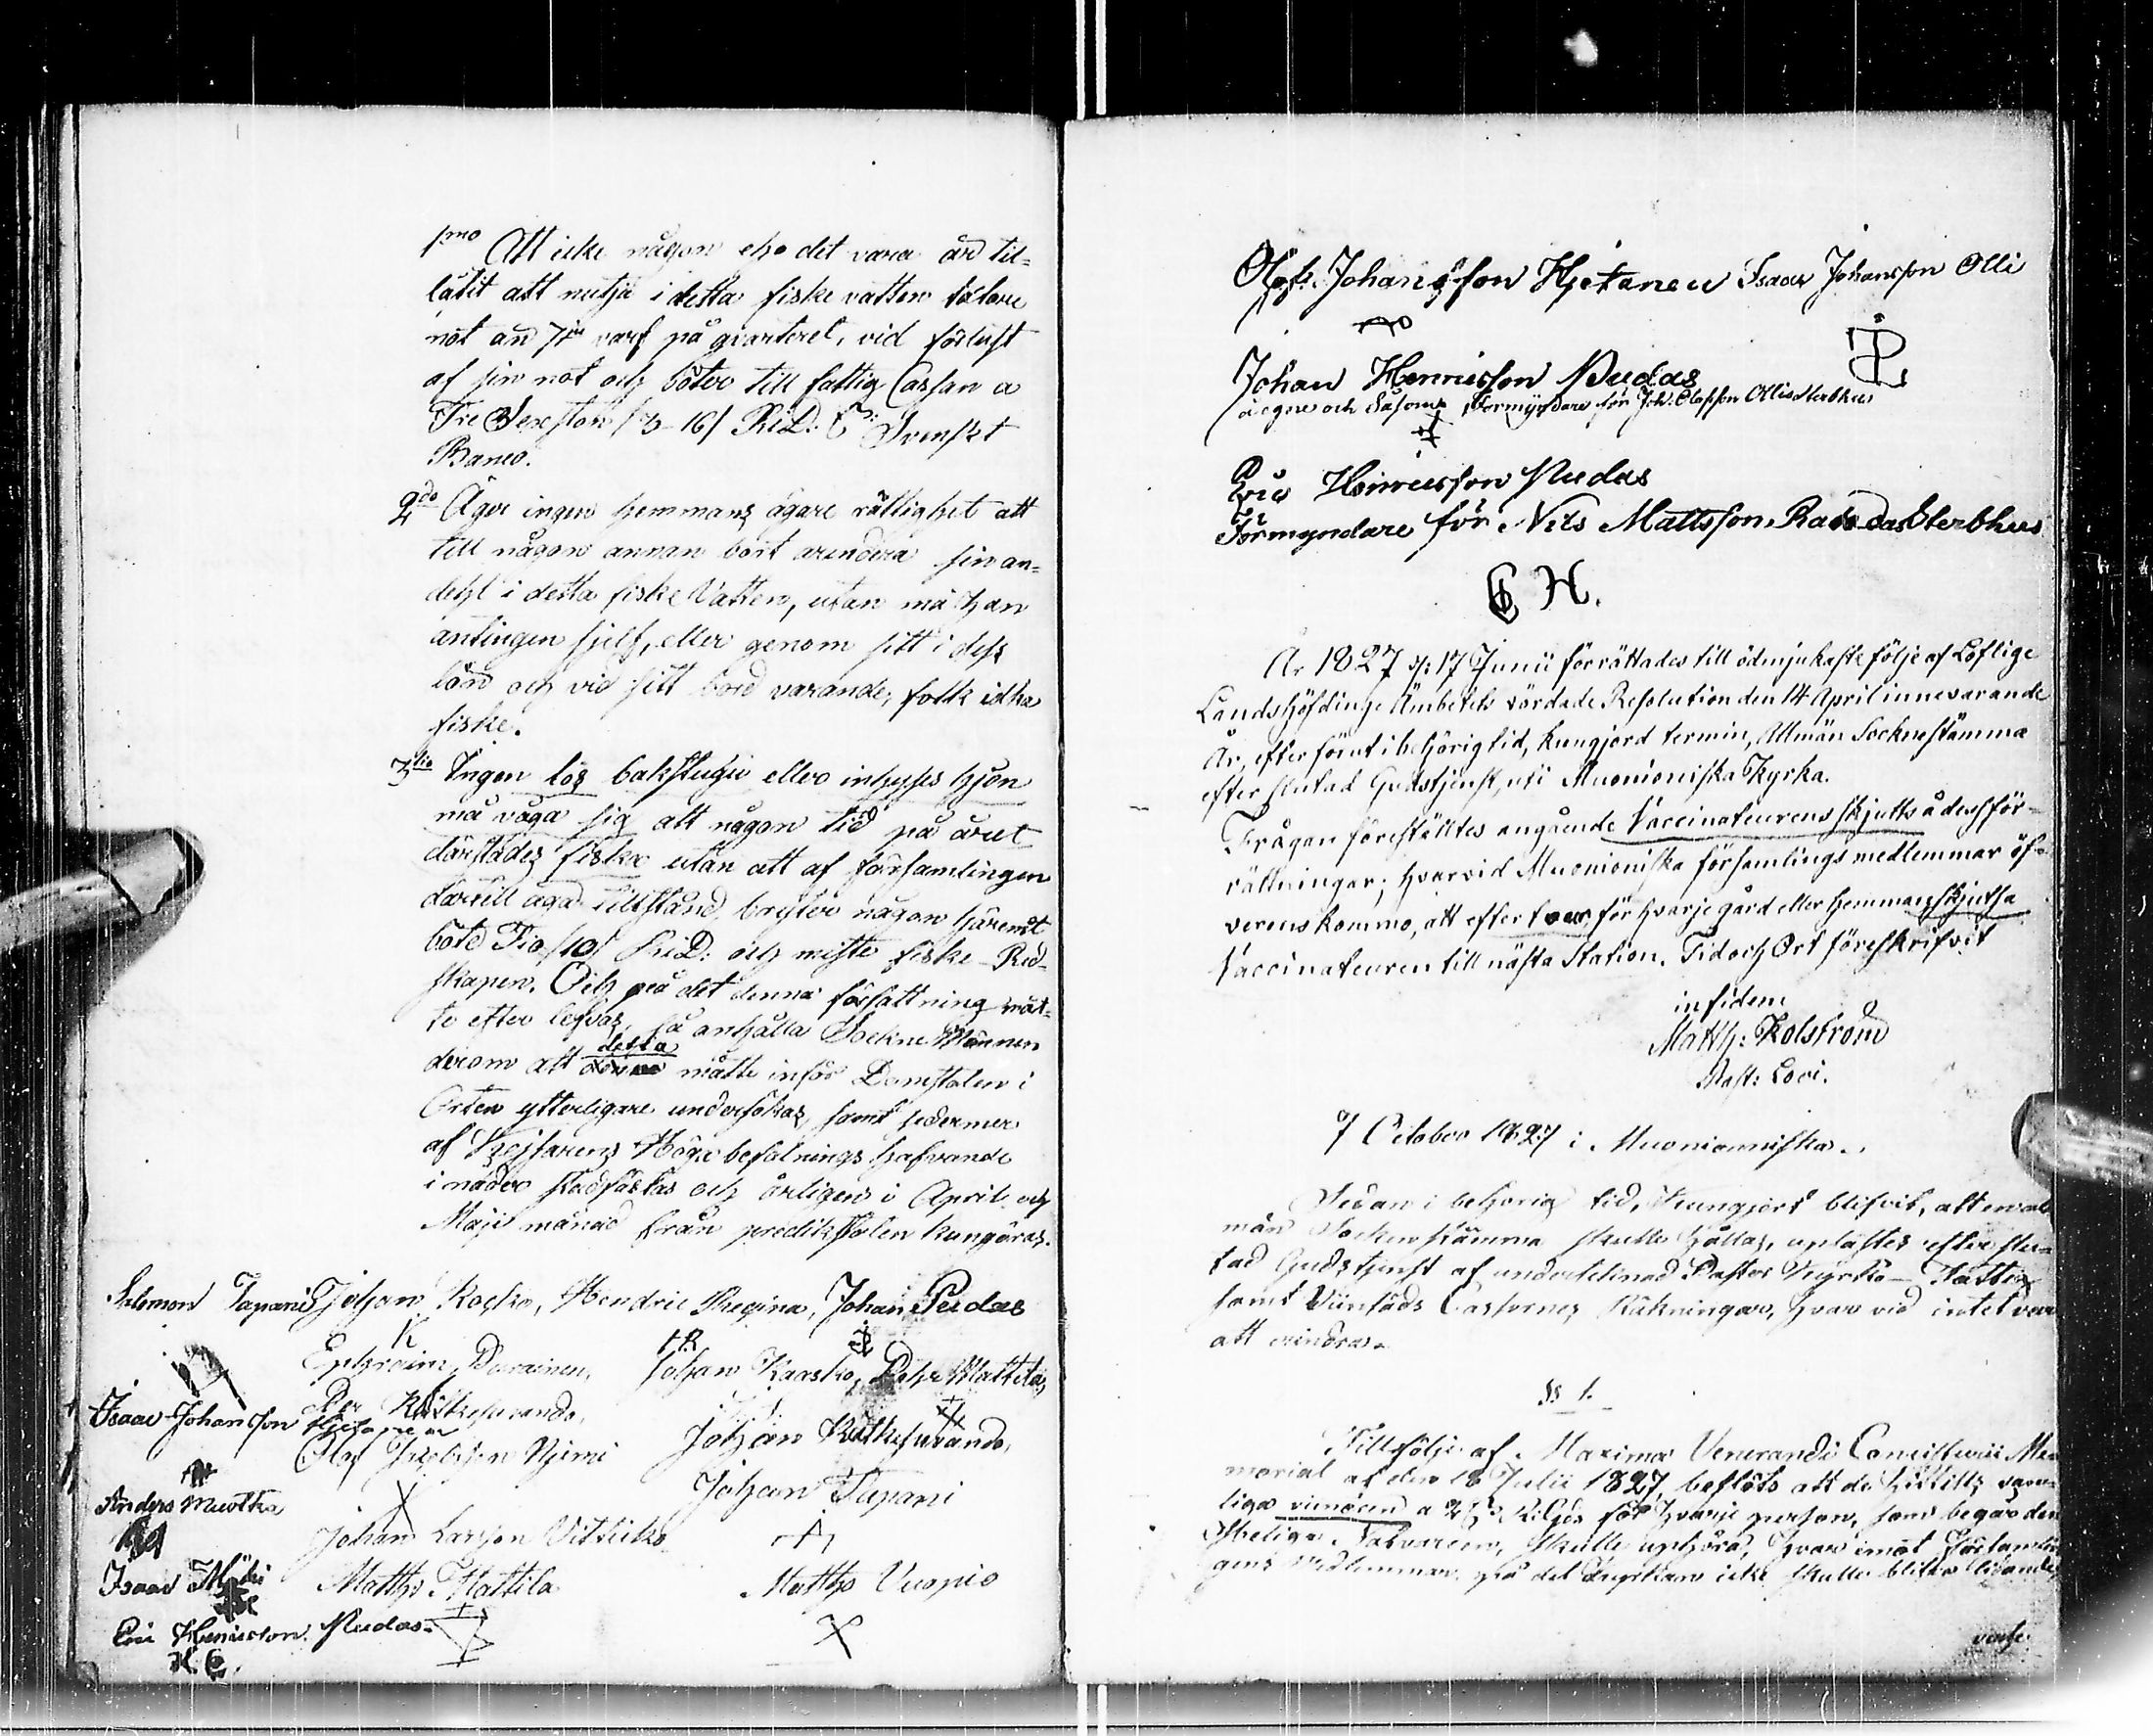 1mo Att icke någon eho det vara än til-
låtit att nutja i detta fiske vatten tätare
not än 7 varf på qvarteret, vid förlust
af sin not och böter till fattig Cassan a
Tre 3 Sexston /3-16/ RiD: Svenskt
Banco.
2do Äger ingen hemmans ägare rättighet att
till någon annan bort arendera sin an-
dehl i detta fiske Vatten, utan må han
antingen sjelf, eller genom sitt i dess
lön och vid sitt bord varande, folk idka
fiske.
3tio Ingen lös bakstugu eller inhyses hjon
må våga sig att någon tid på året
därstädes fiska utan att af församlingen
därtill äga tillstånd, bryter någon häremot
böte Tio /10/ RiD: och miste fiske-Red-
skapen. Och på det denna författning måt-
te efter lefvas, så anhålla Sockne Männen
derom att detta måtte inför Domstolen i
Orten ytterligare undersökas, samt sedermera
af Kejsarens Höga befalnings hafvande
i nåder stadfästas och årligen i April och
Maji månad från predikstolen kungöras.
Salomon Tapani Johan Kosko, Hendric Regina, Johan Pudas
K HR
Ephraim Durainen, Johan Kaasko, Pehr Mattila,
Isaac Johansson Hjetanen Per Kätkesuando,
Olof Njemi Johan Kätkesuando,
Anders Muotka Johan Tapani
Johan Larsson Vittikko
Isaac Matths Mattila Matths Vuopio
Eric Henricsson Pudas
H. E.
Olof Johansson Hjetaneu Isaac Johansson Olli
Johan Henricsson Pudas
å egne och såsom Förmyndare för Joh: Olofsson Ollis sterbhus
Eric Henricsson Pudas
Förmyndare för Nils Mattsson Sterbhus
E H.
År 1827 17 Junii förrättades till ödmjukaste följe af Löflige
Landshöfdinge Ämbetets vördade Resolution den 14 April innevarande
År, efter förut i behörig tid, kungjord termin, Allmän Sockenstämma
efter slutad Gudstjenst, uti Muonioniska Kyrka.
Frågan föreställtes angående Vaccinateurens skjutts å dess för-
rättningar; hvarvid Muonioniska församlings medlemmar öf-
verens kommo, att efter tour för hvarje gård eller hemman skjutsa
Vaccinateuren till nästa Station. Tid och Ort föreskrifvit
in fidem
Matth: Kolström
Past: Loci.
7 October 1827 i Muonionniska.
Sedan i behörig tid, kungjort blifvit, att en all
män Sockenstämma skulle hållas, uplästes efter slu-
tad Gudstjenst af undertecknad Pastor Kyrko- Fattig
samt Cassornes Räkningar, hvar vid intet var
att erindras.
§ 1.
Till följe af Maxime Venerandi Consistorii Me-
morial af den 18 Julii 1827, beslöts att de hittills van-
liga för hvarje person, som begår den
Heliga Nattvarden, skulle uphöra, hvar emot Försam-
gens Medlemmar på det Kyrkan icke skulle blifva lidande